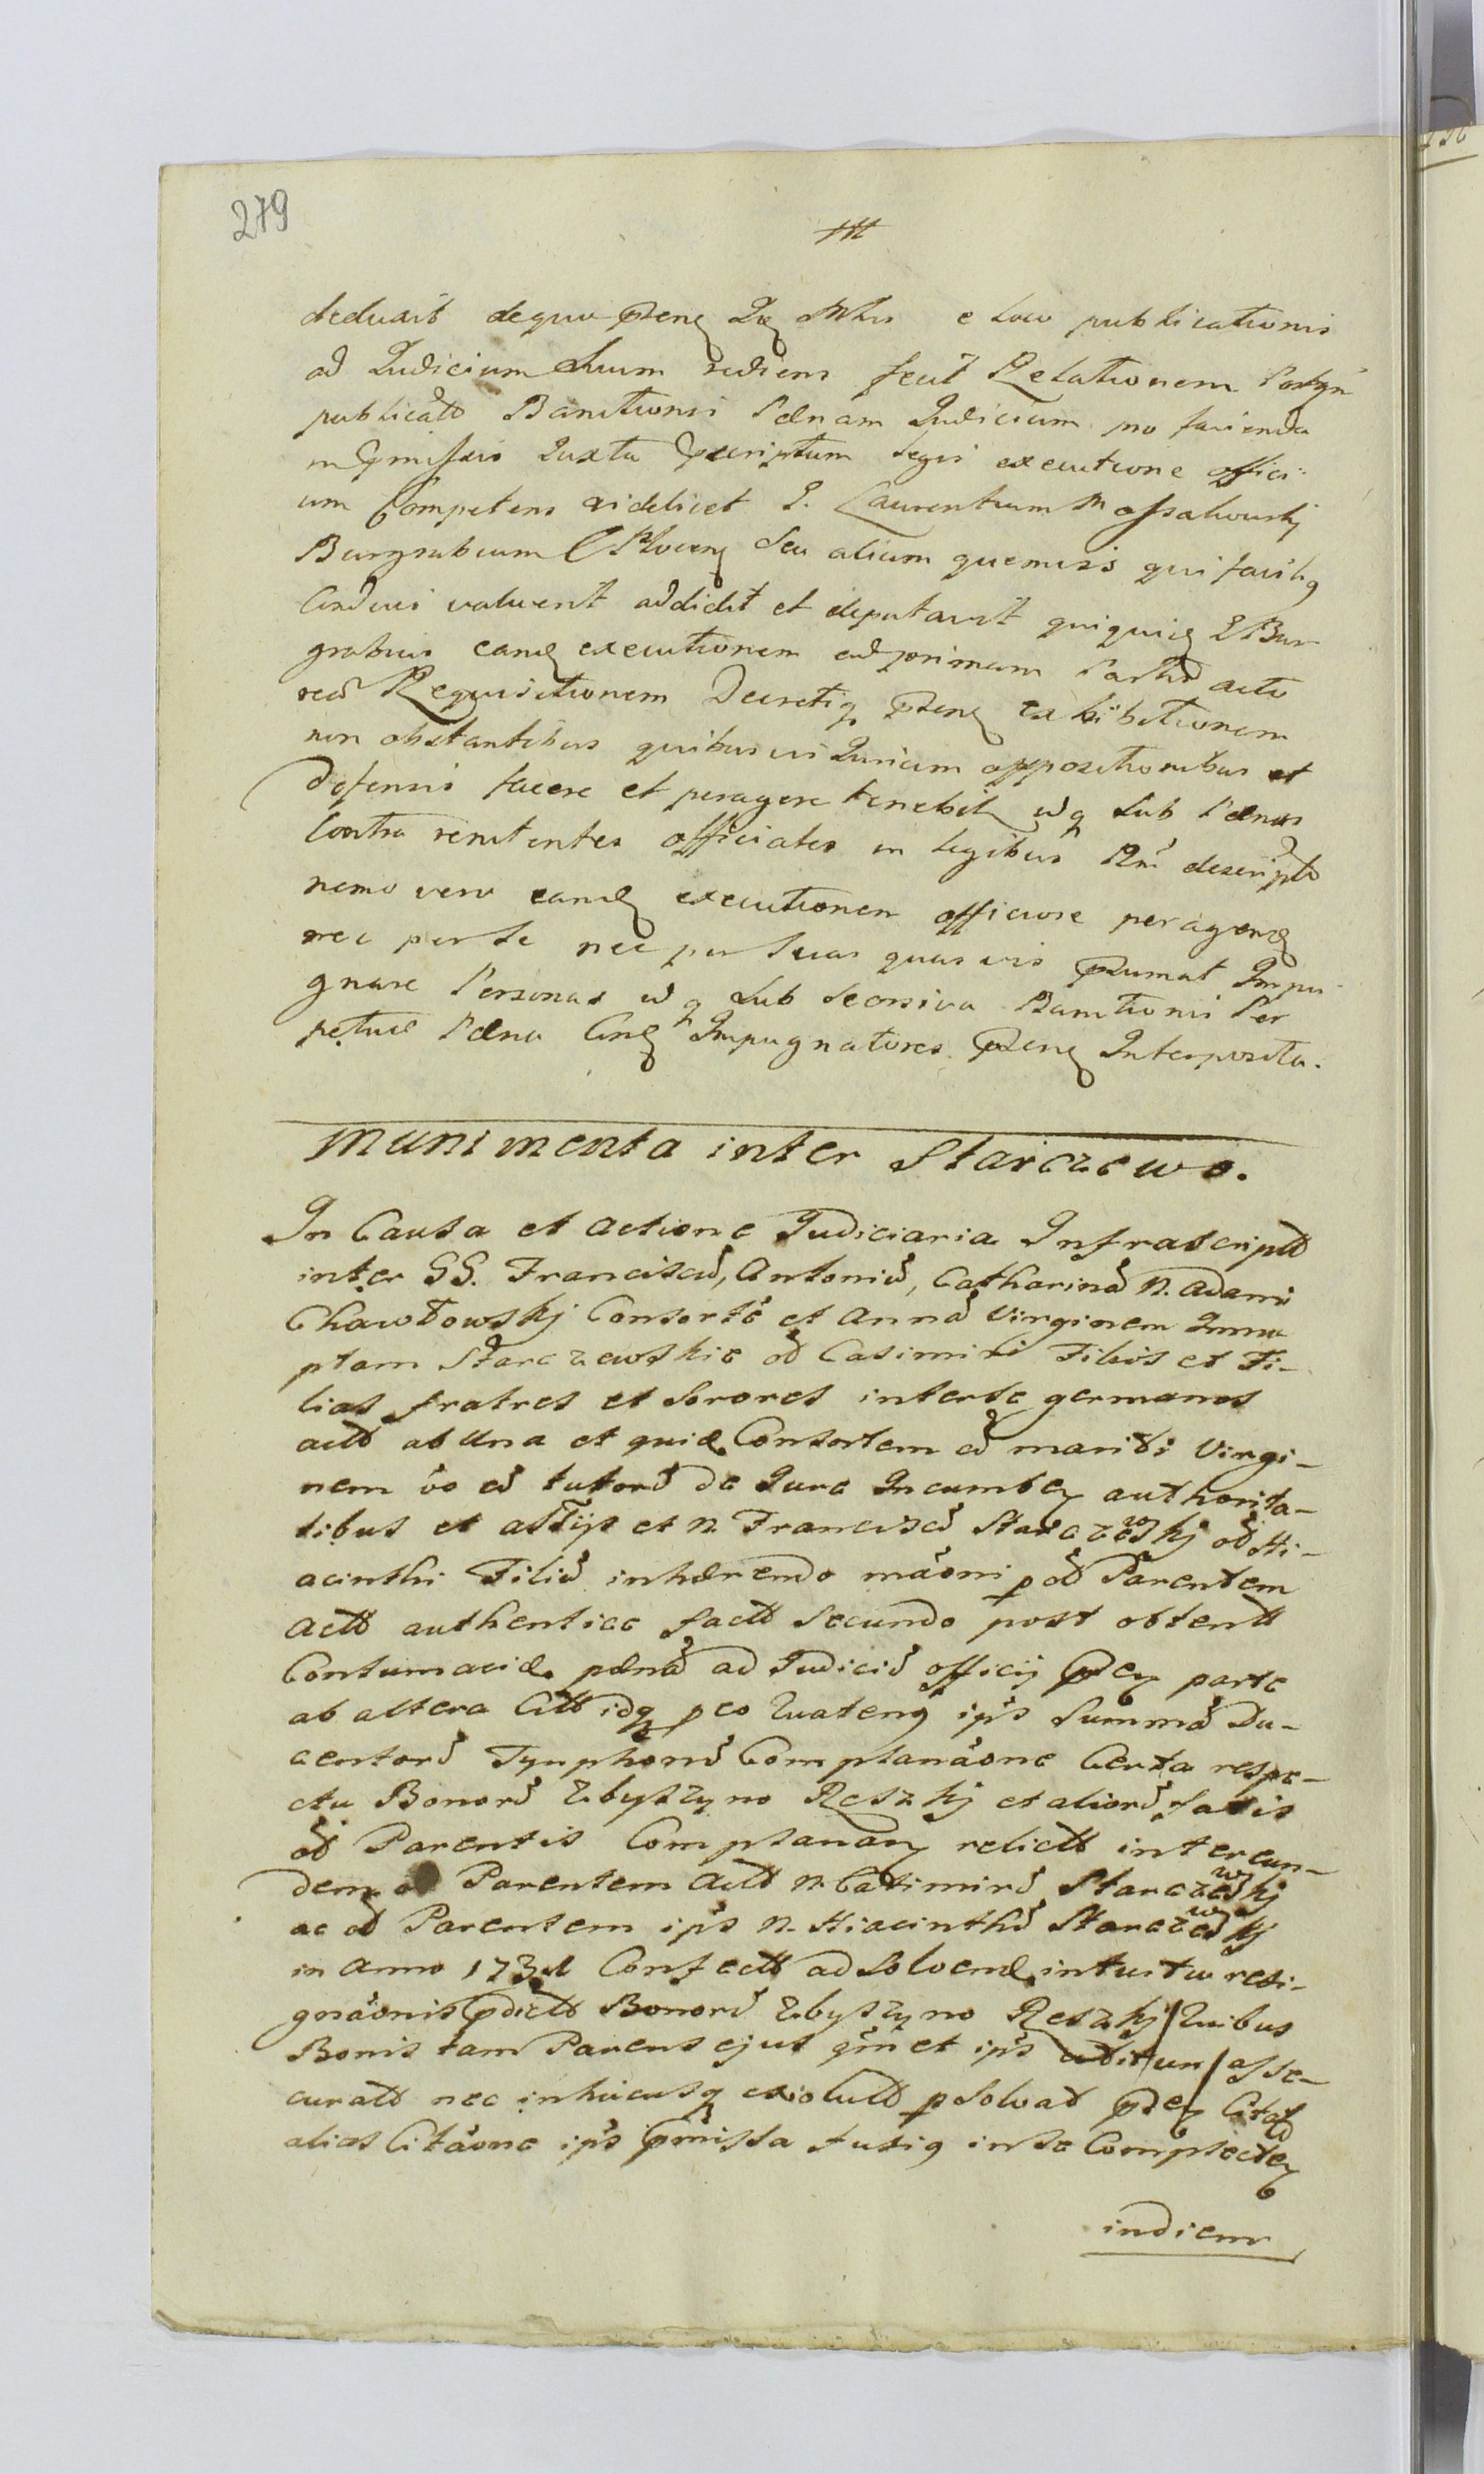 279
deduxit dequa Prng Idg Mtrs e loco publicationis
ad Judicium Suum rediens fecit Relationem Postqm
publicatã Banitionis Pœnam Judicium pro facienda
in Pmissis Juxta Prescriptum legis executione offici-
um Competens videlicet G. Laurentium Mossakowskj
Burgrabium Plocen Seu alium quemvis qui facilig
Conduci valuerit addidit et deputavit quiquid G Bur
grabius eand executionem ad primam Partis acto
reã Requisitionem Decretiq Prng exhibitionem
non obstantibus quibusvis Jurium oppositionibus et
defensis facere et peragere tenebit idq Sub Pœnis
Contra renitentes officiales in legibus Rni descriptis
nemo vero eand executionem officiose peragend
nec per Se nec per Suas quasvis Prsumat Impu-
gnare Personas idq Sub Secorsiva Banitionis Per
petuæ Pœna Cong Impugnatores Prng Interposita.
Munimenta inter Starczews.
In Causa et actione Judiciaria Infrascriptã
inter GG. Franciscũ, Antoniũ, Catharinã N. Adami
Chawłowskj Consortẽ et Annã Virginem Innu
ptam Starczewskie oð Casimiri Filios et Fi-
lias fratres et Sorores inter se germanos
actã ab Una et quid Consortem cũ mariti Virgi-
nem vo cũ tutorũ de Jure Incumben authorita-
tibus et assijs et N. Franciscũ Starczewskj oð Hi-
acinthi Filiũ inhærendo mãoni p oð Parentem
Actã authentice factã Secundo post obtentã
Contumaciæ pœnã ad Judiciũ officij Pren parte
ab altera Cittã idq p eo Quateng ips Summã Du-
centorũ Tynphorũ Complanãone Certa respe-
ctu Bonorũ Zbyszyno Reszkj et aliorũ factis
oð Parentis Complanan relictã inter eun-
dem Parentem Actã N. Casimirũ Starczewskj
ac oð Parentem ips N. Hiacinthũ Starczewskj
in Anno 173 Confectã ad Solvend intuitu resi-
gnãonis Pdictã Bonorũ Zbyszyno Reszkj / Quibus
Bonis tam Parens ejus qm et ips utitur / asse-
curatã nec inhucusq exolutã p Solvat Pren Citatã
alias Citãone ips Pmissa fusig in se Complecten
indicem